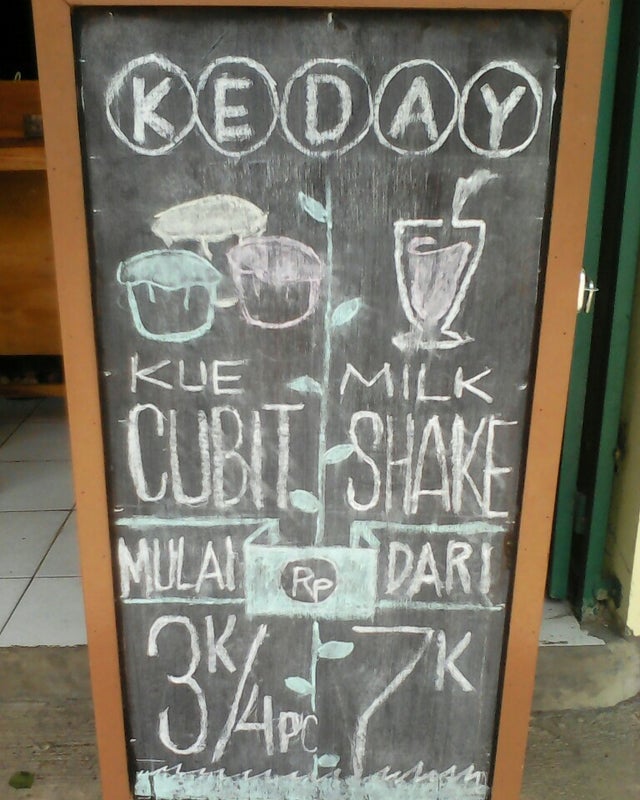 KEDAY
KUE MILK
CUBIT SHAKE
MULAI Rp DARI
3K/4PC 7K